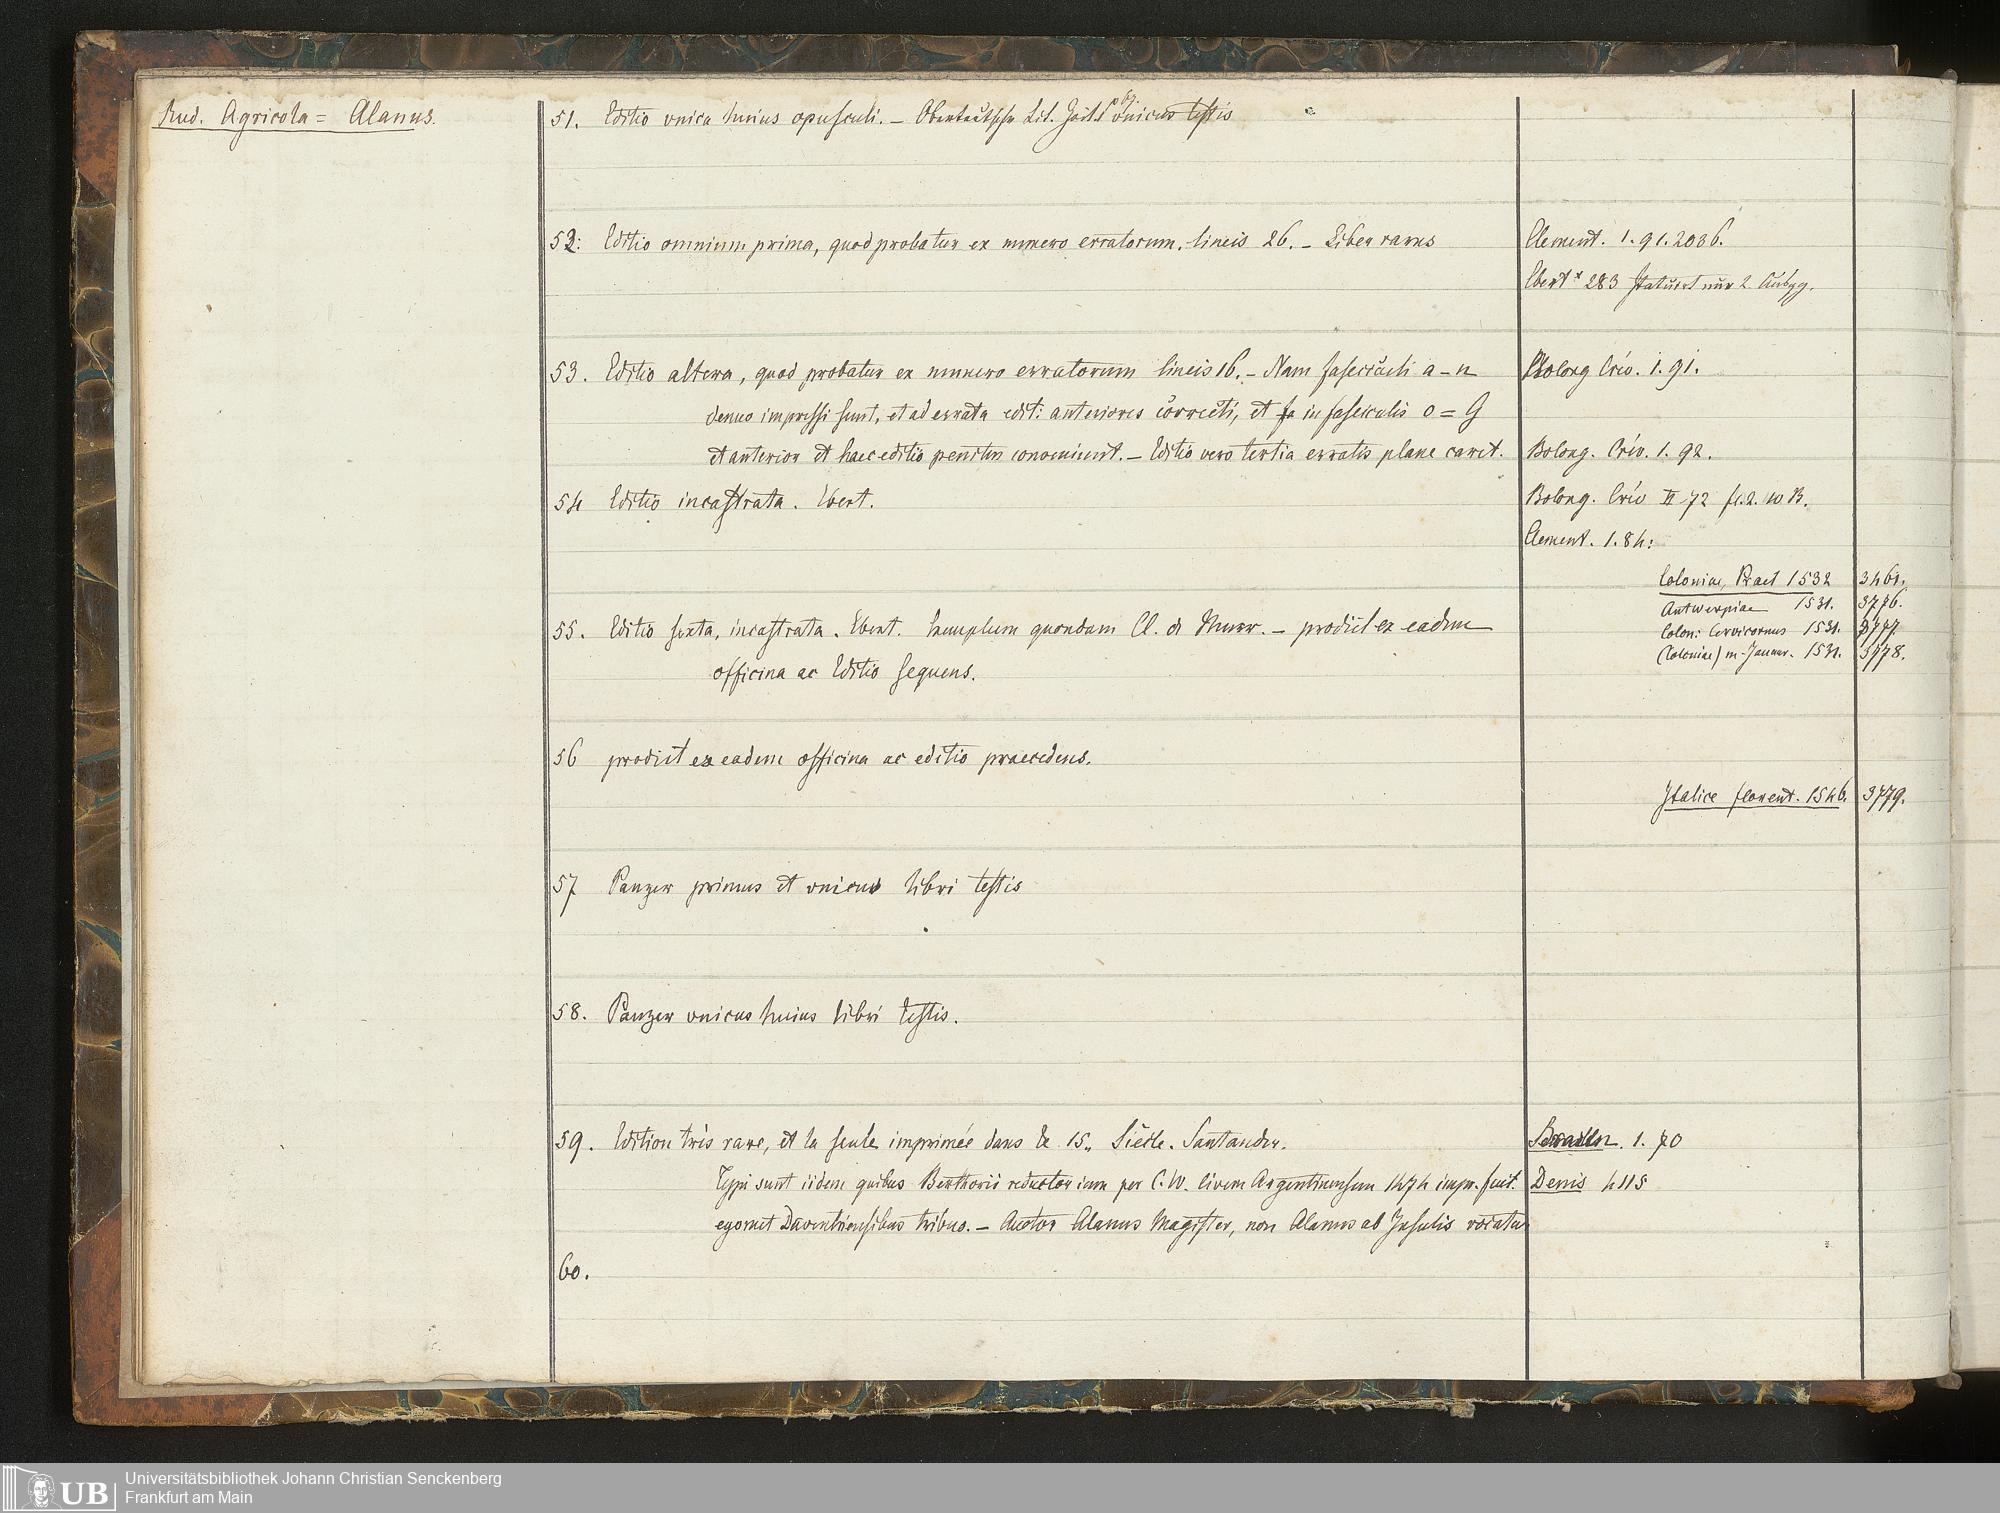 Rud. Agricola = Alanus.
51. Editio vnica huius opusculi. – Oberteütsche Lit. Zeit. vnicus testis
52: Editio omnium prima, quod probatur ex numero erratorum. lineis 26. – Liber rarus
Clement. 1. 91. 2036.
Ebert 283 statuirt nur 2 Ausgg.
53. Editio altera, quod probatur ex numero erratorum lineis 16. – Nam fasciculi a – n
Bolong Crev. 1. 91.
denuo impressi sunt, et ad errata edit: anterioris correcti, et in fasciculis o = G
et anterior et haec editio penitus conveniunt. – Editio vero tertia erratis plane caret.
Bolong. Crev. 1. 92.
54 Editio incastrata. Ebert.
Bolong. Crev II 72
Clement. 1. 84:
Coloniae, Prael 1532 3461.
Antwerpiae 1531. 3776.
Colon: Cervicornus 1531. 3777.
(Coloniae) m. Januar. 1531. 3778.
55. Editio sexta, incastrata. Ebert. Exemplum quondam Cl. d Murr. – prodiit ex eadem
officina ac Editio sequens.
56 prodiit ex eadem officina ac editio praecedens.
Italice florent. 1546. 3779.
57 Panzer primus et vnicus libri testis
58. Panzer vnicus huius libri testis.
59. Edition très rare, et la seule imprimée dans le 15„ Siécle. Santander.
1. 70
Typi sunt iidem quibus Berthorii reductorium per C. W. civem Argentinensem 1474 impr. fuit.
Denis 4115
egomet Daventriensibus tribuo. – Auctor Alanus Magister, non Alanus ab Insulis vocatur
60.
UB
Universitätsbibliothek Johann Christian Senckenberg
Frankfurt am Main